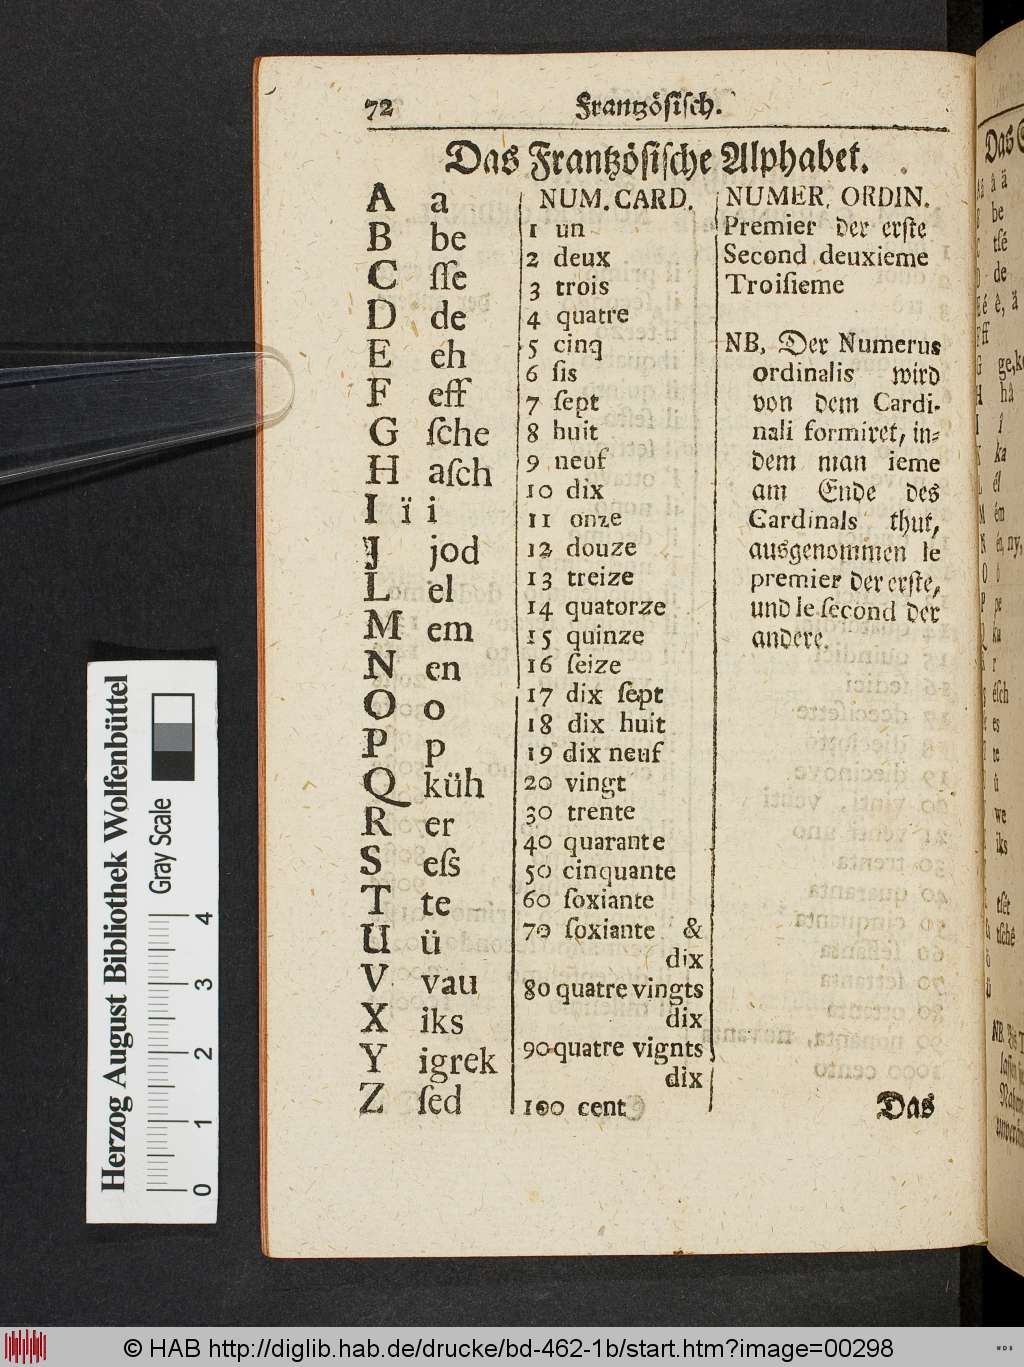 72 Frantzösisch.
Das Frantzösische Alphabet.
A a
B be
C ſſe
D de
E eh
F eff
G ſche
H aſch
I ï i
J jod
L el
M em
N en
O o
P p
Q küh
R er
S eſs
T te
U ü
V vau
X iks
Y igrek
Z ſed
NUM. CARD.
1 un
2 deux
3 trois
4 quatre
5 cinq
6 ſis
7 ſept
8 huit
9 neuf
10 dix
11 onze
12 douze
13 treize
14 quatorze
15 quinze
16 ſeize
17 dix ſept
18 dix huit
19 dix neuf
20 vingt
30 trente
40 quarante
50 cinquante
60 ſoxiante
70 ſoxiante &
dix
80 quatre vingts
dix
90 quatre vignts
dix
100 cent
NUMER. ORDIN.
Premier der erſte
Second deuxieme
Troiſieme
NB. Der Numerus
ordinalis wird
von dem Cardi-
nali formiret, in=
dem man ieme
am Ende des
Cardinals thut,
ausgenommen le
premier der erſte,
und le ſecond der
andere.
Das
Herzog August Bibliothek Wolfenbüttel
Gray Scale
0 1 2 3 4
© HAB http://diglib.hab.de/drucke/bd-462-1b/start.htm?image=00298